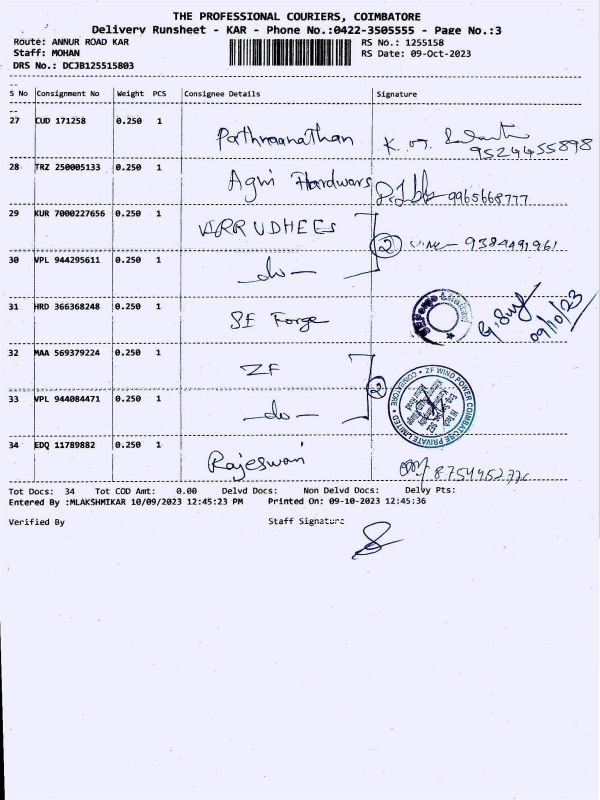 THE PROFESSIONAL COURIERS, COIMBATORE
Delivery Runsheet - KAR - Phone No.:0422-3505555 - Page No.:3
Route: ANNUR ROAD KAR RS No.: 1255158
Staff: MOHAN RS Date: 09-Oct-2023
DRS No.: DCJB125515803
S No Consignment No Weight PCS Consignee Details Signature
27 CUD 171258 0.250 1 K.
9524455898
28 TRZ 250005133 0.250 1 Agni Hardwars 9965668777
29 KUR 7000227656 0.250 1 VIRRUDHEES 2 9384491961
30 VPL 944295611 0.250 1 -do-
31 HRD 366368248 0.250 1 SE Forge 09/10/23
32 MAA 569379224 0.250 1 ZF 2
ZF WIND POWER COIMBATORE PRIVATE LIMITED * COIMBATORE *
33 VPL 944084471 0.250 1 -do-
34 EDQ 11789882 0.250 1 Rajeswari
Tot Docs: 34 Tot COD Amt: 0.00 Delvd Docs: Non Delvd Docs: Delvy Pts:
Entered By :MLAKSHMIKAR 10/09/2023 12:45:23 PM Printed On: 09-10-2023 12:45:36
Verified By Staff Signature